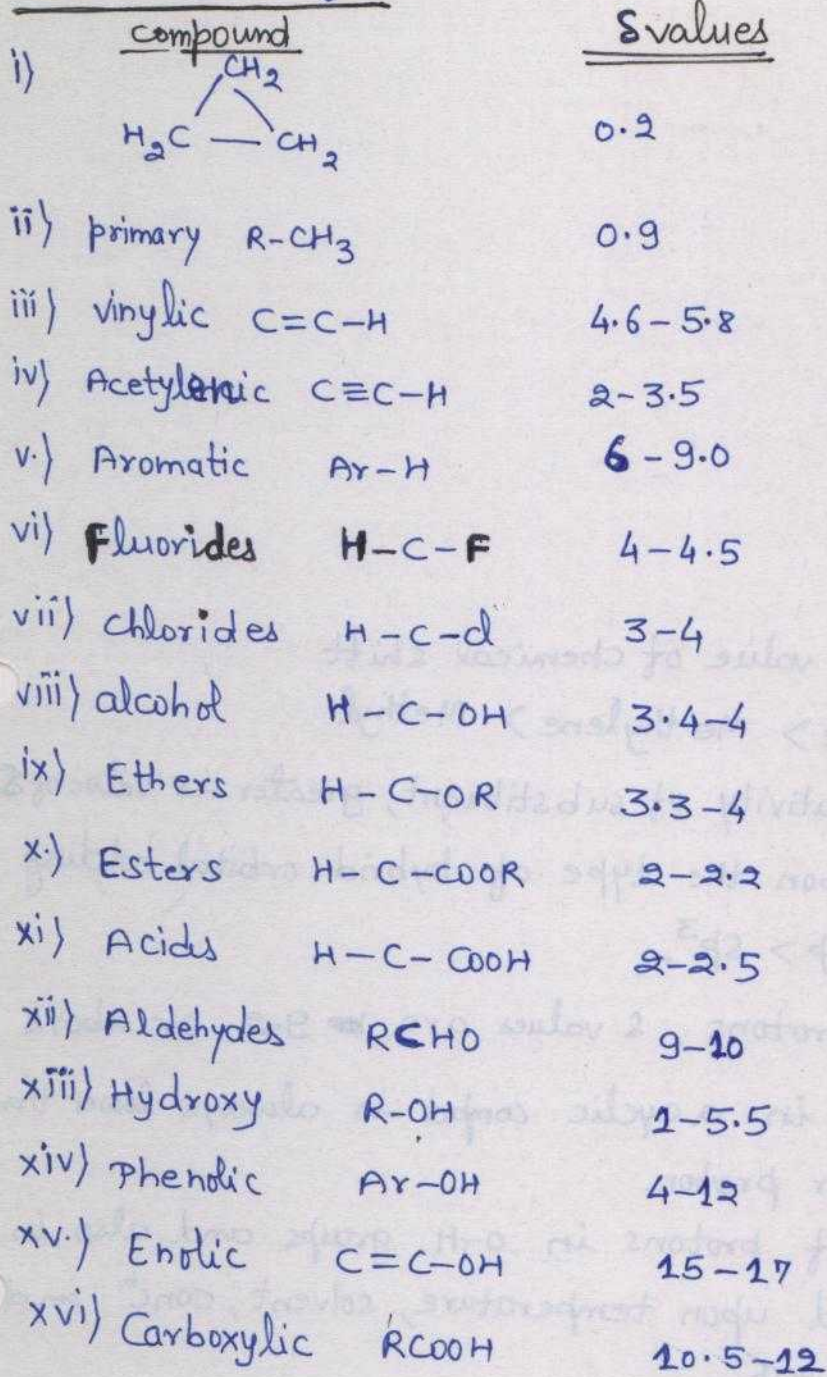 compound δ values
i) CH2
H2C — CH2 0.2
ii) primary R-CH3 0.9
iii) vinylic C=C-H 4.6-5.8
iv) Acetylenic C≡C-H 2-3.5
v.) Aromatic Ar-H 6-9.0
vi) Fluorides H-C-F 4-4.5
vii) chlorides H-C-Cl 3-4
viii) alcohol H-C-OH 3.4-4
ix) Ethers H-C-OR 3.3-4
x.) Esters H-C-COOR 2-2.2
xi) Acids H-C-COOH 2-2.5
xii) Aldehydes RCHO 9-10
xiii) Hydroxy R-OH 1-5.5
xiv) Phenolic Ar-OH 4-12
xv.) Enolic C=C-OH 15-17
xvi) Carboxylic RCOOH 10.5-12